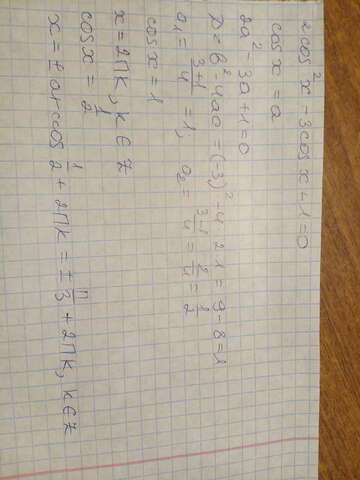 2cos²x - 3cosx + 1 = 0
cosx = a
2a² - 3a + 1 = 0
D = b² - 4ac = (-3)² - 4·2·1 = 9 - 8 = 1
a₁ = (3+1)/4 = 1; a₂ = (3-1)/4 = 2/4 = 1/2
cosx = 1
x = 2Πk, k∈Z
cosx = 1/2
x = ± arccos 1/2 + 2Πk = ± Π/3 + 2Πk, k∈Z